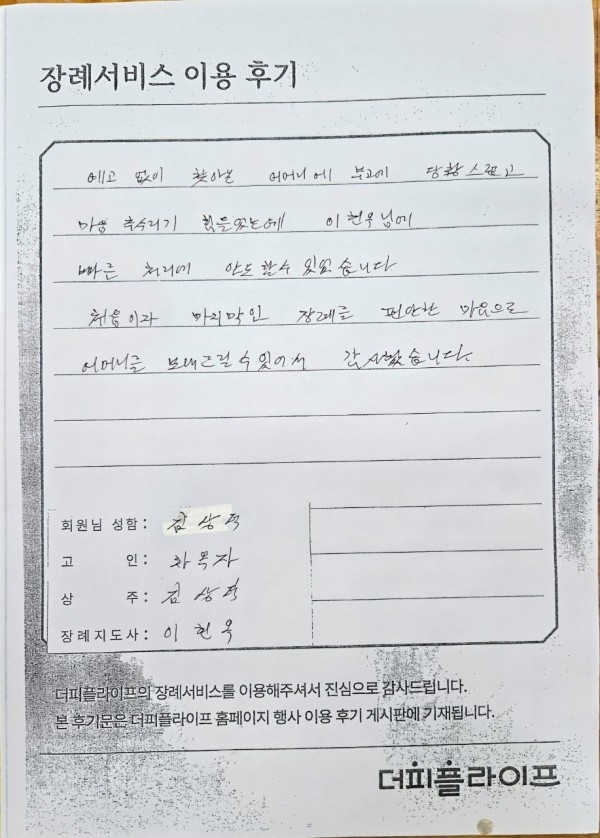 장례서비스 이용 후기
예고 없이 찾아온 어머니에 부고에 당황스럽고
마음 추수리기 힘들었는데 이현욱님에
빠른 처리에 안도 할수 있었습니다
처음이자 마지막인 장례를 편안한 마음으로
어머니를 보내드릴 수 있어서 감사했습니다.
회원님 성함: 김상덕
고 인: 옥자
상 주: 김상덕
장례지도사: 이현욱
더피플라이프의 장례서비스를 이용해주셔서 진심으로 감사드립니다.
본 후기문은 더피플라이프 홈페이지 행사 이용 후기 게시판에 기재됩니다.
더피플라이프